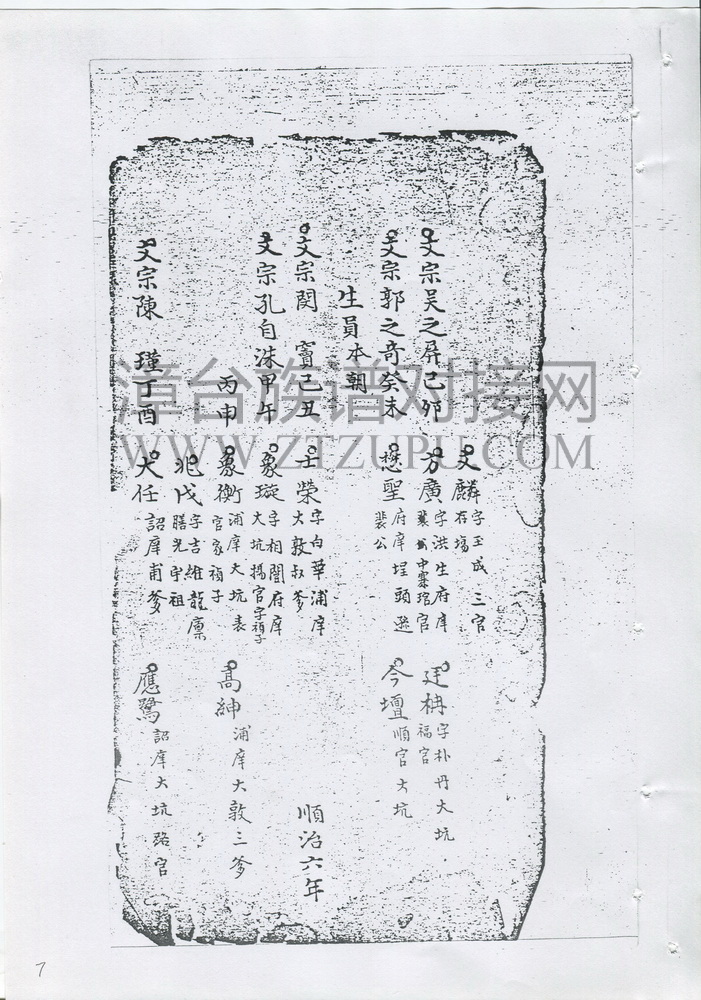 文麟 字玉成 三官
存塲
文宗吴之屏己卯 方廣 字洪生府庠
廷栴 字朴丹大坑
福官
文宗郭之奇癸未 懋聖 府庠埕頭
裴公
今壇 順官大坑
生員本朝
順治六年
文宗閔 竇己丑 士榮 字白華浦庠
大敦叔爹
文宗孔自洙甲午 象璇 字相闇府庠
大坑揚官字禎子
丙申 象衡 浦庠大坑表
官家禎子
高紳 浦庠大敦三爹
兆伐 字吉維龍廪
膳光宇祖
文宗陳 瑾丁酉 大任 詔庠甫爹
應鷺 詔庠大坑路官
漳台族谱对接网
WWW.ZTZUPU.COM
7